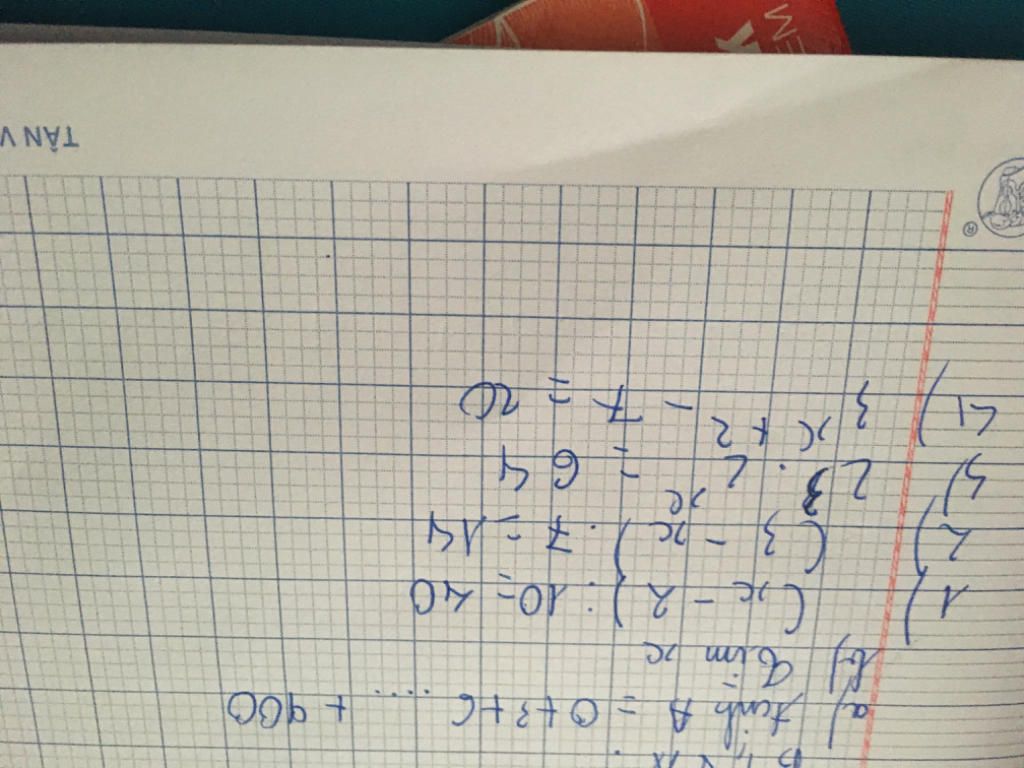 a) tính A = 0 + 3 + 6 .... + 900
b) Tìm x
1) (x - 2) : 10 = 20
2) (3 - x) . 7 = 14
3) 2³ . 2ˣ = 64
4) 3ˣ⁺² - 7 = 20
TÂN V